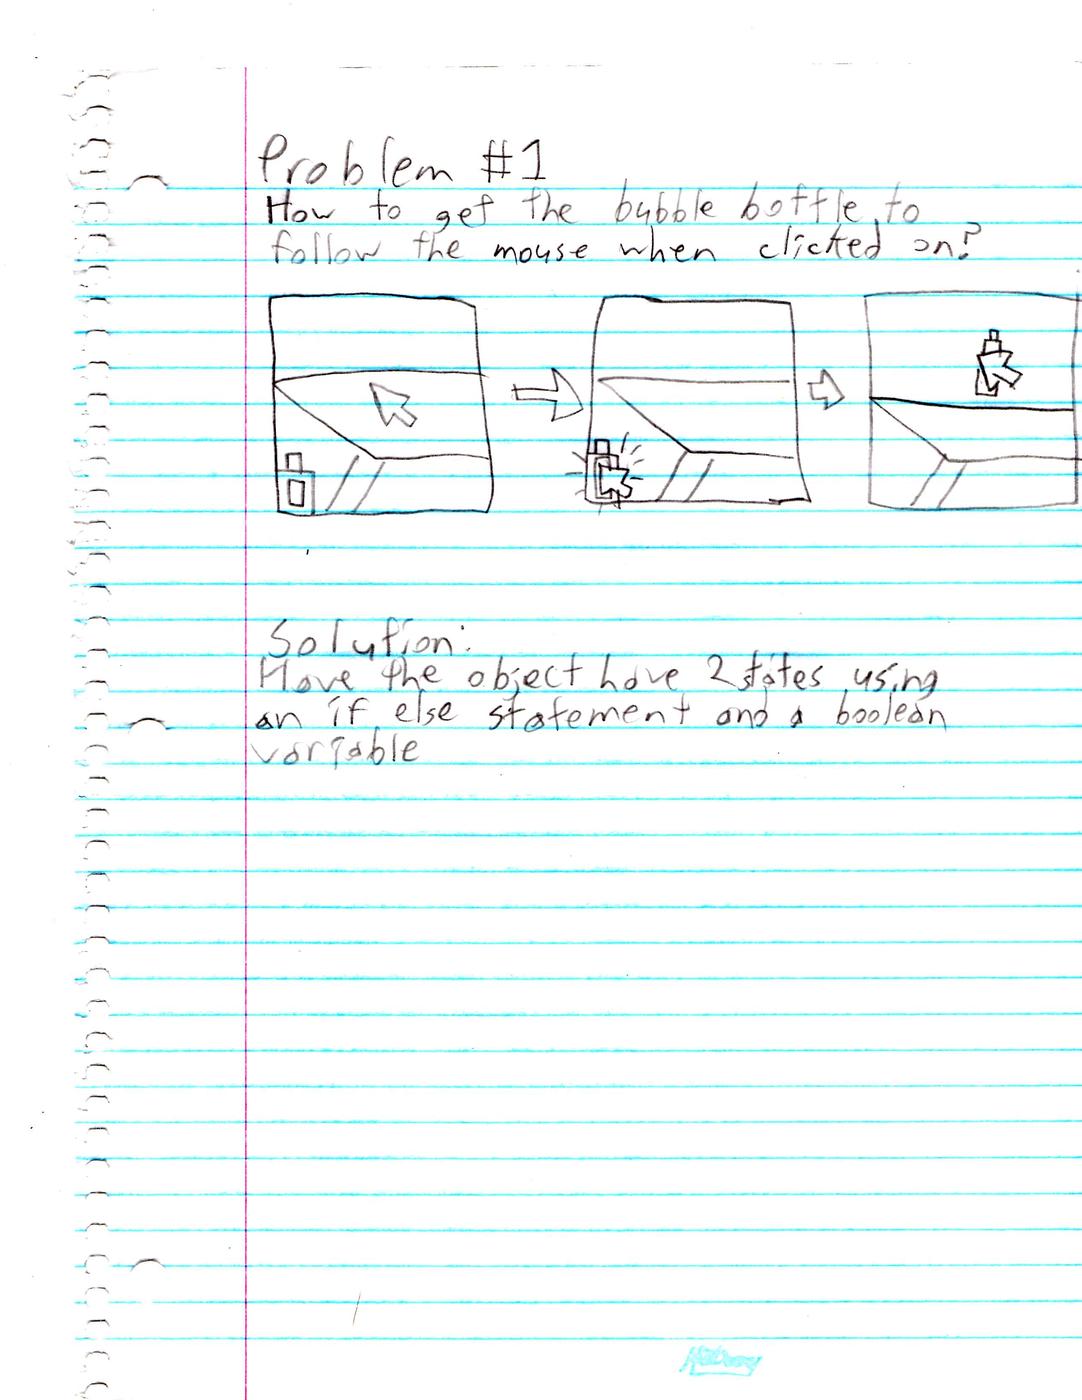 Problem #1
How to get the bubble bottle to
follow the mouse when clicked on?
Solution:
Have the object have 2 states using
an if else statement and a boolean
variable